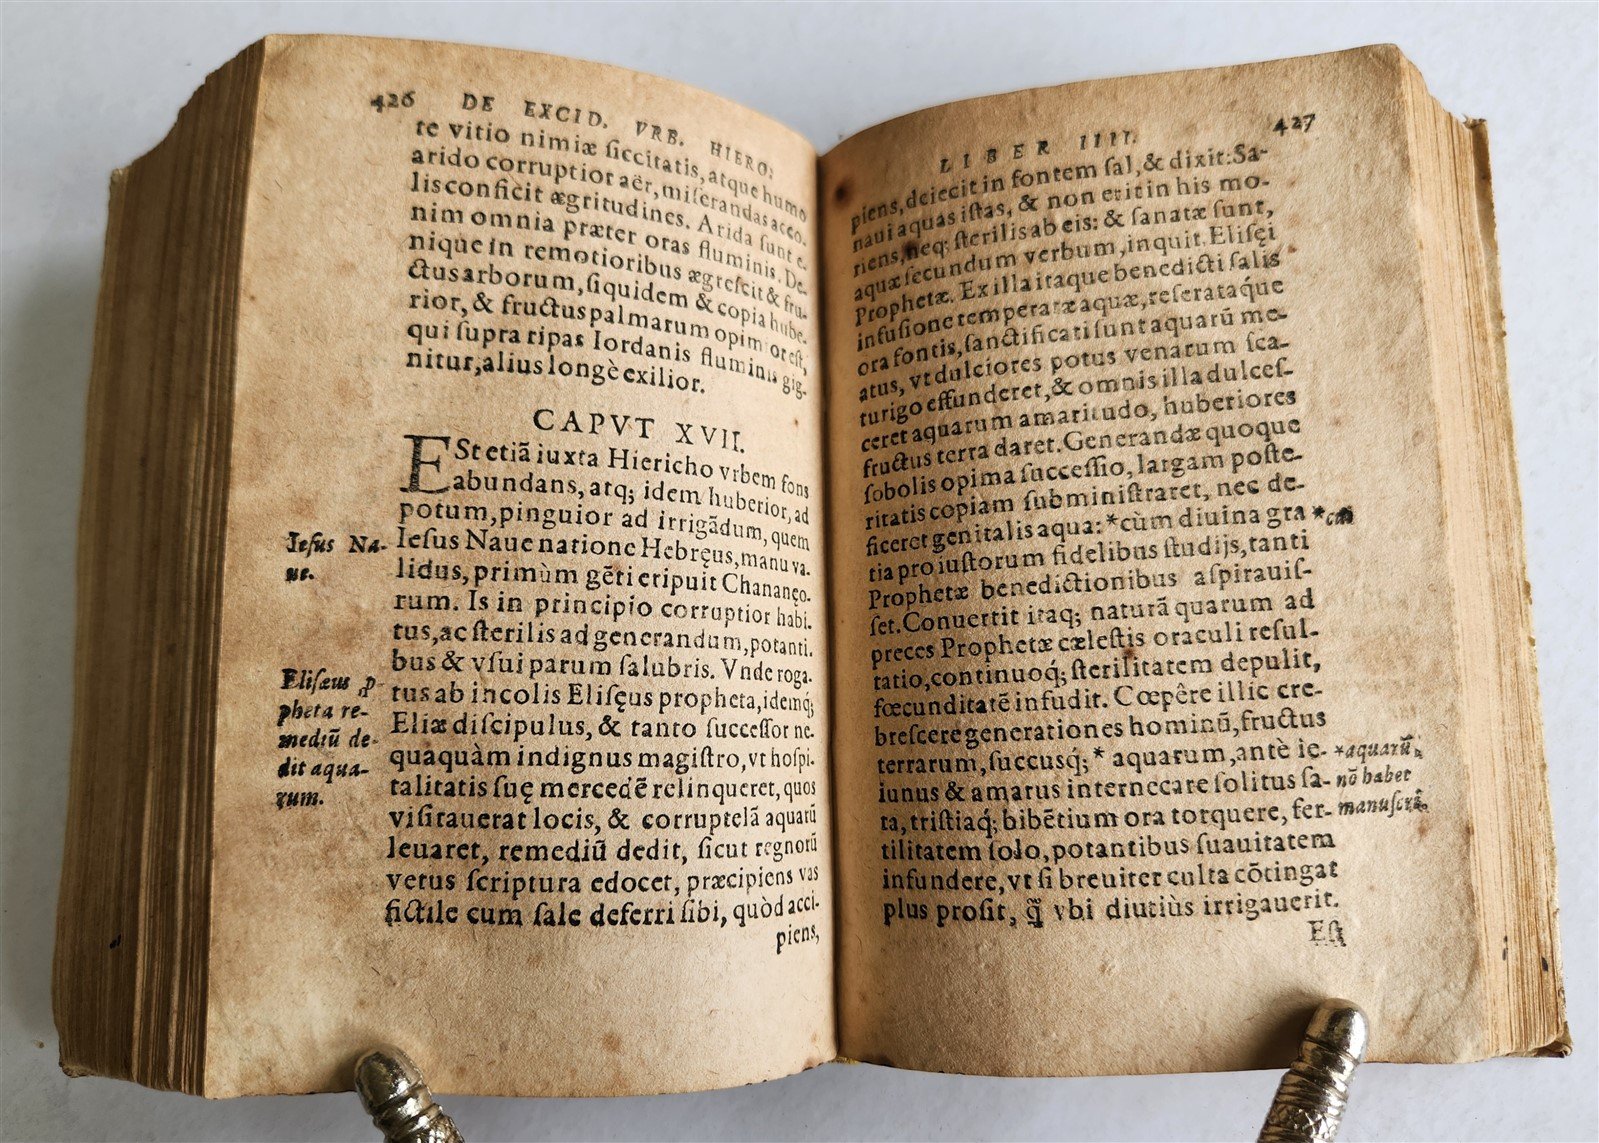 426 DE EXCID. VRB. HIERO;
te vitio nimiæ ſiccitatis, atque humo
arido corruptior aër, miſerandas acco-
lis conficit ægritudines. Arida ſunt e-
nim omnia præter oras fluminis. De-
nique in remotioribus ægreſcit & fru-
ctus arborum, ſiquidem & copia hube-
rior, & fructus palmarum opimior eſt,
qui ſupra ripas Iordanis fluminis gig-
nitur, alius longè exilior.
CAPVT XVII.
ESt etiā iuxta Hiericho vrbem fons
abundans, atq; idem huberior, ad
potum, pinguior ad irrigādum, quem
Ieſus Naue natione Hebręus, manu va-
lidus, primùm gēti eripuit Chananęo-
rum. Is in principio corruptior habi-
tus, ac ſterilis ad generandum, potanti-
bus & vſui parum ſalubris. Vnde roga-
tus ab incolis Eliſęus propheta, idemq́;
Eliæ diſcipulus, & tanto ſucceſſor ne-
quaquàm indignus magiſtro, vt hoſpi-
talitatis ſuę mercedē relinqueret, quos
viſitauerat locis, & corruptelā aquarū
leuaret, remediū dedit, ſicut regnorū
vetus ſcriptura edocet, præcipiens vas
fictile cum ſale deferri ſibi, quòd acci-
piens,
Ieſus Na-
ue.
Eliſæus ꝓ-
pheta re-
mediū de-
dit aqua-
rum.
LIBER IIII. 427
piens, deiecit in fontem ſal, & dixit: Sa-
naui aquas iſtas, & non erit in his mo-
riens, neq; ſterilis ab eis: & ſanatæ ſunt,
aquæ ſecundum verbum, inquit. Eliſęi
Prophetæ. Ex illa itaque benedicti ſalis
infuſione temperatæ aquæ, reſerataq́ue
ora fontis, ſanctificati ſunt aquarū me-
atus, vt dulciores potus venarum ſca-
turigo effunderet, & omnis illa dulceſ-
ceret aquarum amaritudo, huberiores
fructus terra daret. Generandæ quoque
ſobolis opima ſucceſſio, largam poſte-
ritatis copiam ſubminiſtraret, nec de-
ficeret genitalis aqua: *cùm diuina gra
tia pro iuſtorum fidelibus ſtudijs, tanti
Prophetæ benedictionibus aſpirauiſ-
ſet. Conuertit itaq; naturā quarum ad
preces Prophetæ cæleſtis oraculi reſul-
tatio, continuoq́; ſterilitatem depulit,
fœcunditatē infudit. Cœpêre illic cre-
breſcere generationes hominū, fructus
terrarum, ſuccusq́; * aquarum, antè ie-
iunus & amarus internecare ſolitus ſa-
ta, triſtiaq́; bibētium ora torquere, fer-
tilitatem ſolo, potantibus ſuauitatem
infundere, vt ſi breuiter culta cōtingat
plus proſit, q̄̃ vbi diutiùs irrigauerit.
Eſt
*cui
*aquarū,
nō habet
manuſcri.